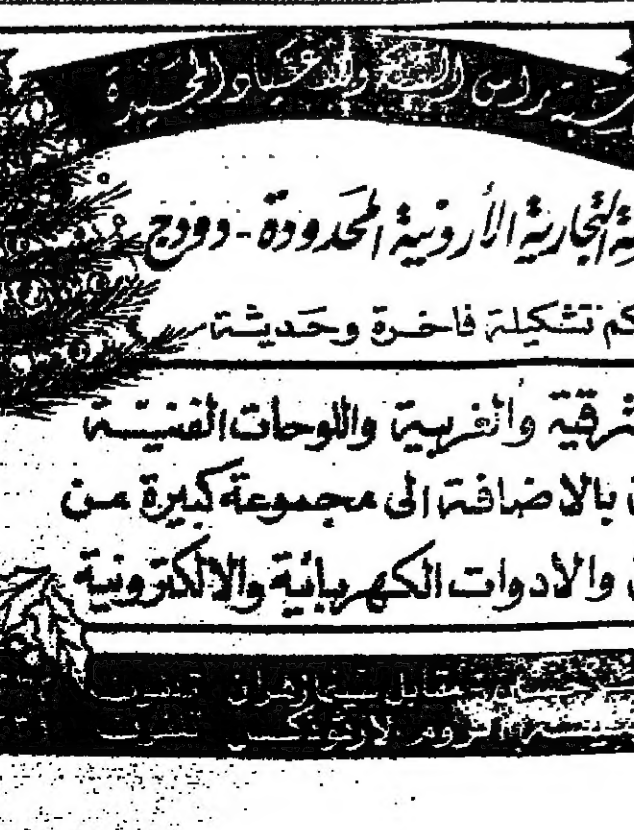 برأس السنة والأعياد المجيدة
التجارية الأردنية المحدودة - دودج
كم تشكيلة فاخرة وحديثة
شرقية والغربية واللوحات الفنية
بالاضافة الى مجموعة كبيرة من
والادوات الكهربائية والالكترونية
مقابل
الروم الارثوذكس